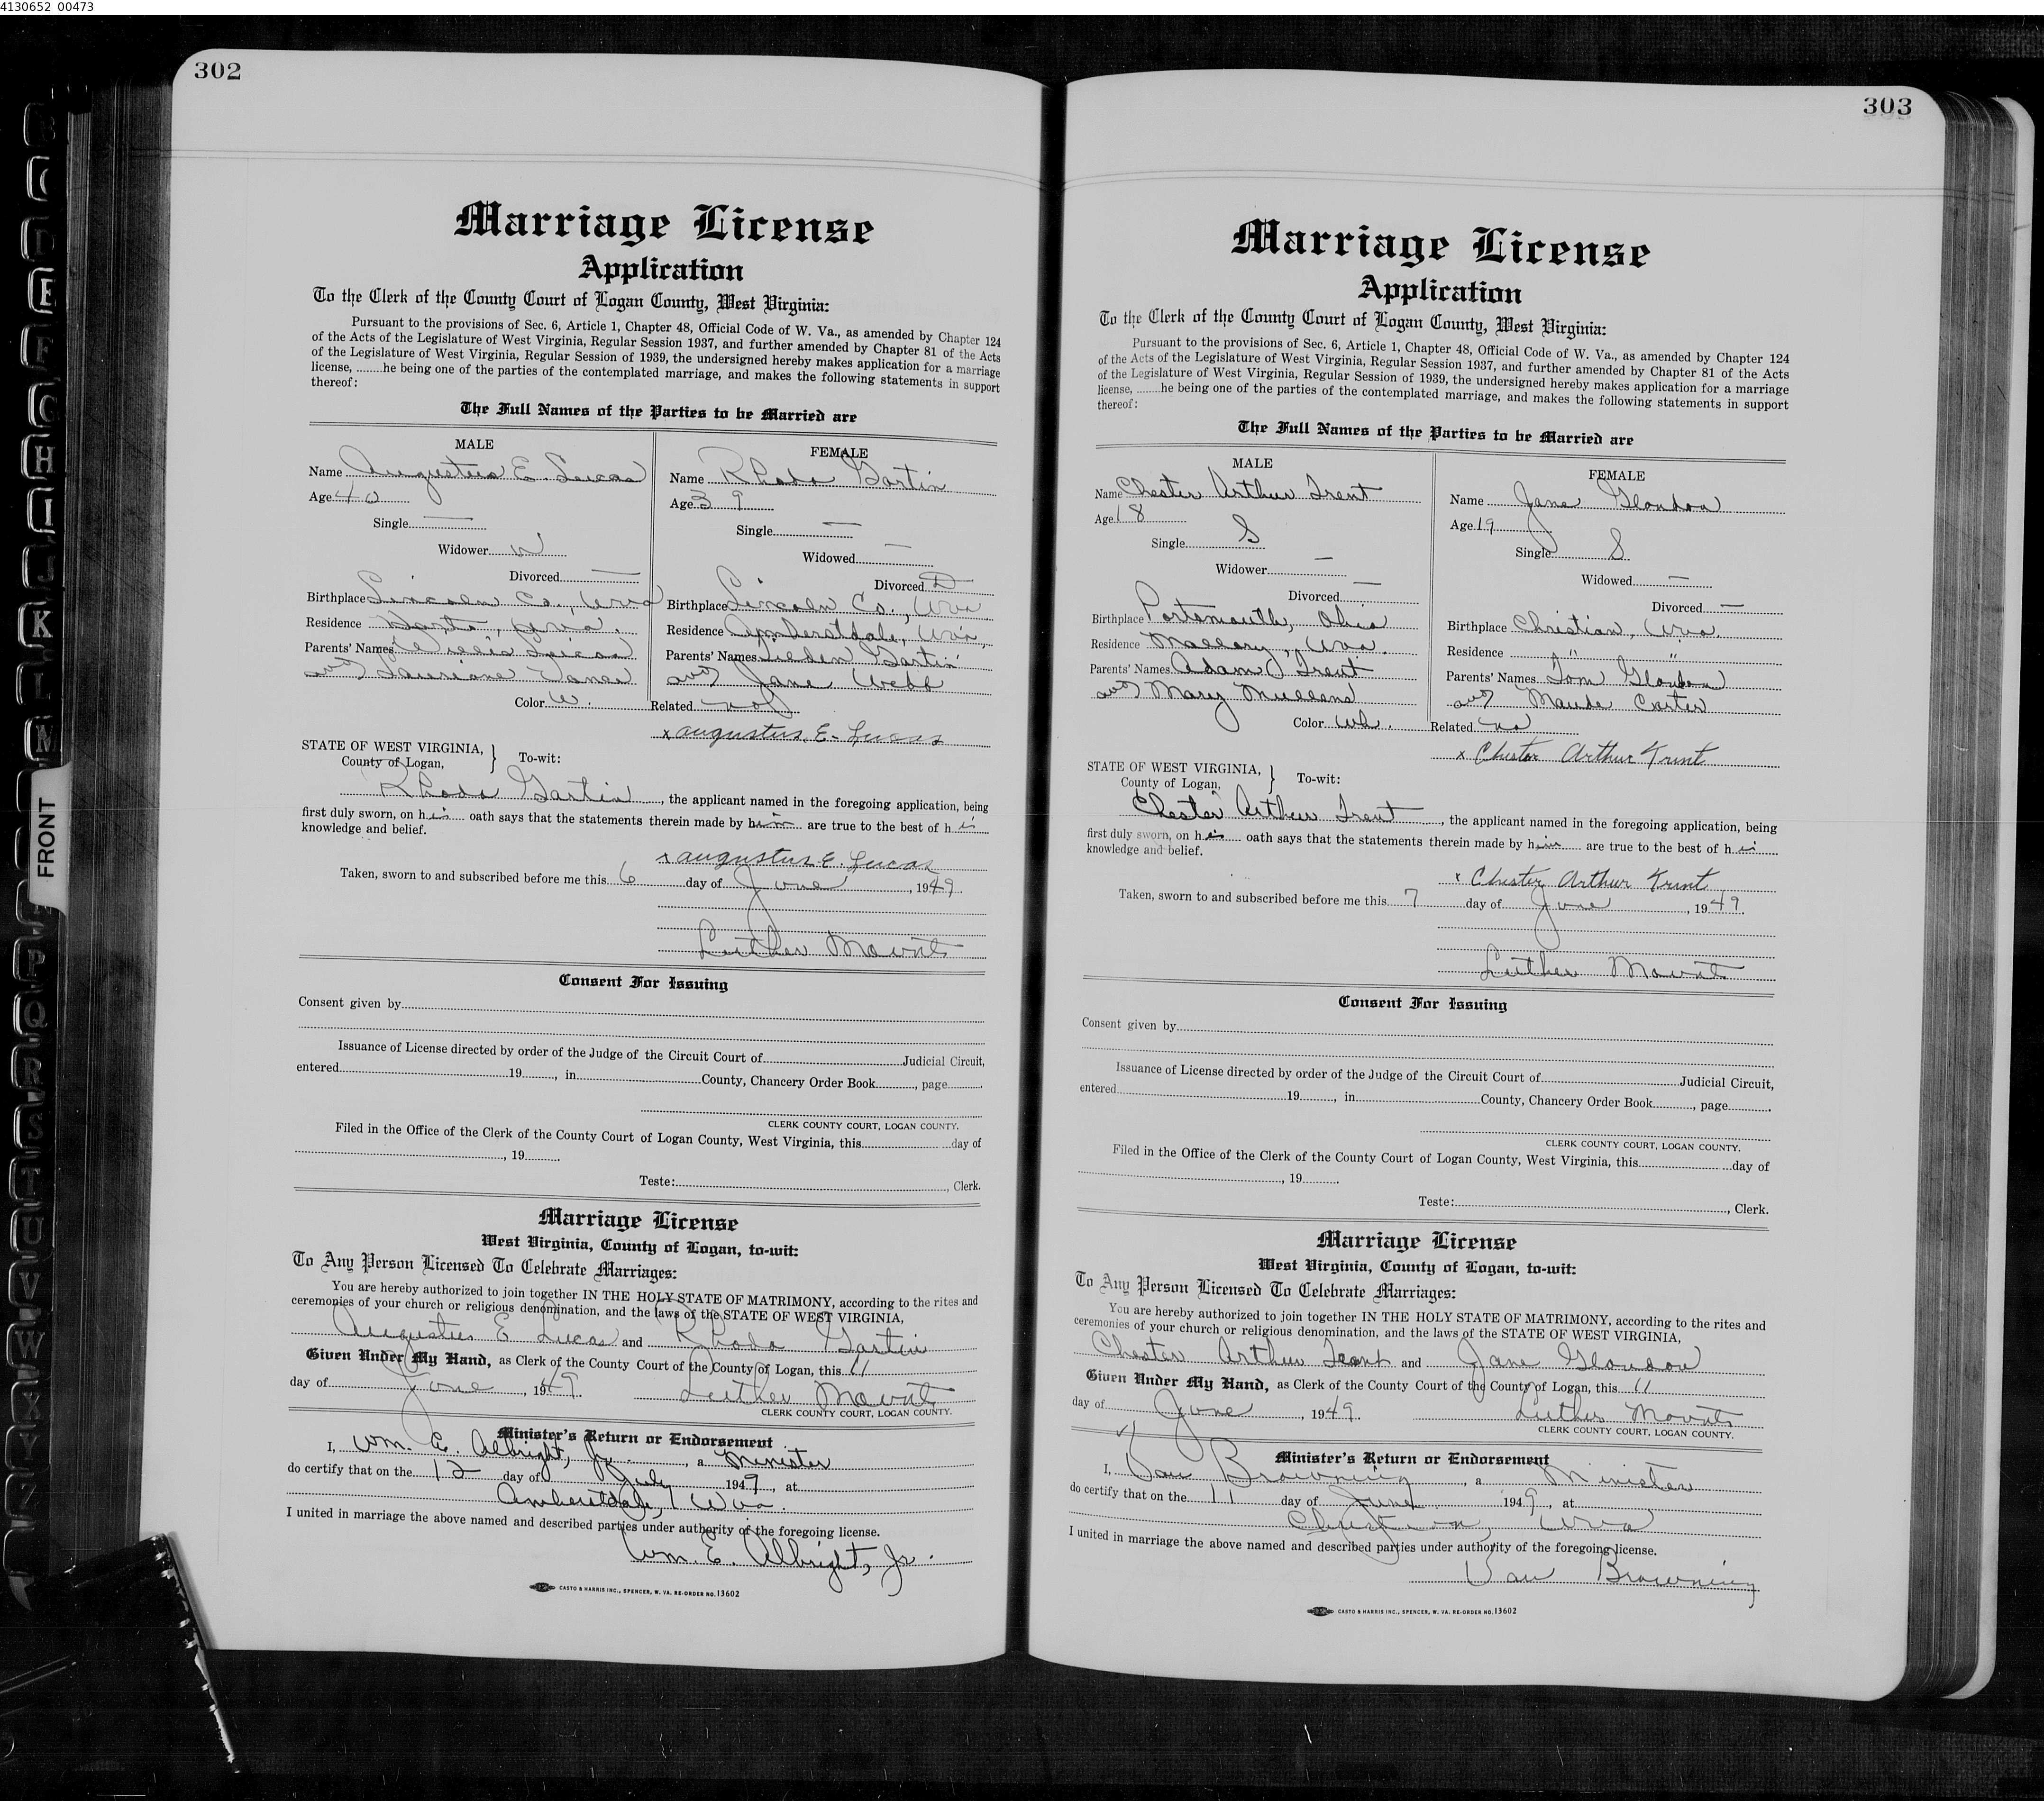 4130652_00473
302
Marriage License
Application
To the Clerk of the County Court of Logan County, West Virginia:
Pursuant to the provisions of Sec. 6, Article 1, Chapter 48, Official Code of W. Va., as amended by Chapter 124
of the Acts of the Legislature of West Virginia, Regular Session 1937, and further amended by Chapter 81 of the Acts
of the Legislature of West Virginia, Regular Session of 1939, the undersigned hereby makes application for a marriage
license, ........he being one of the parties of the contemplated marriage, and makes the following statements in support
thereof:
The Full Names of the Parties to be Married are
MALE
Name Augustus E. Lucas
Age 40
Single —
Widower W
Divorced —
Birthplace Lincoln Co., Wva
Residence , Wva.
Parents' Names Willis Lucas
and Vance
Color W.
FEMALE
Name Rhoda Gartin
Age 39
Single —
Widowed —
Divorced D
Birthplace Lincoln Co., Wva
Residence Amherstdale, Wva,
Parents' Names Gartin
and Jane Webb
Related no
x augustus. E. Lucas
STATE OF WEST VIRGINIA,
County of Logan, } To-wit:
Rhoda Gartin, the applicant named in the foregoing application, being
first duly sworn, on his oath says that the statements therein made by him are true to the best of his
knowledge and belief.
x augustus. E. Lucas
Taken, sworn to and subscribed before me this 6 day of June, 1949.
Luther Mounts
Consent For Issuing
Consent given by
Issuance of License directed by order of the Judge of the Circuit Court of Judicial Circuit,
entered 19, in County, Chancery Order Book, page
CLERK COUNTY COURT, LOGAN COUNTY.
Filed in the Office of the Clerk of the County Court of Logan County, West Virginia, this day of
, 19
Teste:, Clerk.
Marriage License
West Virginia, County of Logan, to-wit:
To Any Person Licensed To Celebrate Marriages:
You are hereby authorized to join together IN THE HOLY STATE OF MATRIMONY, according to the rites and
ceremonies of your church or religious denomination, and the laws of the STATE OF WEST VIRGINIA,
Augustus E Lucas and Rhoda Gartin
Given Under My Hand, as Clerk of the County Court of the County of Logan, this 11
day of June, 1949 Luther Mounts
CLERK COUNTY COURT, LOGAN COUNTY.
Minister's Return or Endorsement
I, Wm. E. Albright, Jr., a Minister
do certify that on the 12 day of July 1949, at
Amherstdale, Wva.
I united in marriage the above named and described parties under authority of the foregoing license.
Wm. E. Albright, Jr.
CASTO & HARRIS INC., SPENCER, W. VA. RE-ORDER NO. 13602
303
Marriage License
Application
To the Clerk of the County Court of Logan County, West Virginia:
Pursuant to the provisions of Sec. 6, Article 1, Chapter 48, Official Code of W. Va., as amended by Chapter 124
of the Acts of the Legislature of West Virginia, Regular Session 1937, and further amended by Chapter 81 of the Acts
of the Legislature of West Virginia, Regular Session of 1939, the undersigned hereby makes application for a marriage
license, ........he being one of the parties of the contemplated marriage, and makes the following statements in support
thereof:
The Full Names of the Parties to be Married are
MALE
Name Chester Arthur Trent
Age 18
Single S
Widower —
Divorced —
Birthplace Portsmouth, Ohio
Residence Mallory, Wva.
Parents' Names Adam Trent
and Mary Mullens
Color Wh.
FEMALE
Name Jane Glandon
Age 19
Single S
Widowed —
Divorced —
Birthplace Christian, Wva.
Residence " "
Parents' Names Tom Glandon
and Maude Carter
Related no
x Chester Arthur Trent
STATE OF WEST VIRGINIA,
County of Logan, } To-wit:
Chester Arthur Trent, the applicant named in the foregoing application, being
first duly sworn, on his oath says that the statements therein made by him are true to the best of his
knowledge and belief.
x Chester Arthur Trent
Taken, sworn to and subscribed before me this 7 day of June, 1949.
Luther Mounts
Consent For Issuing
Consent given by
Issuance of License directed by order of the Judge of the Circuit Court of Judicial Circuit,
entered 19, in County, Chancery Order Book, page
CLERK COUNTY COURT, LOGAN COUNTY.
Filed in the Office of the Clerk of the County Court of Logan County, West Virginia, this day of
, 19
Teste:, Clerk.
Marriage License
West Virginia, County of Logan, to-wit:
To Any Person Licensed To Celebrate Marriages:
You are hereby authorized to join together IN THE HOLY STATE OF MATRIMONY, according to the rites and
ceremonies of your church or religious denomination, and the laws of the STATE OF WEST VIRGINIA,
Chester Arthur Trent and Jane Glandon
Given Under My Hand, as Clerk of the County Court of the County of Logan, this 11
day of June, 1949. Luther Mounts
CLERK COUNTY COURT, LOGAN COUNTY.
Minister's Return or Endorsement
I, Van Browning, a Minister
do certify that on the 11 day of June 1949, at
Christian, Wva
I united in marriage the above named and described parties under authority of the foregoing license.
Van Browning
CASTO & HARRIS INC., SPENCER, W. VA. RE-ORDER NO. 13602
FRONT
E
F
G
H
I
J
K
L
M
P
Q
R
S
T
U
V
W
X
Y
Z